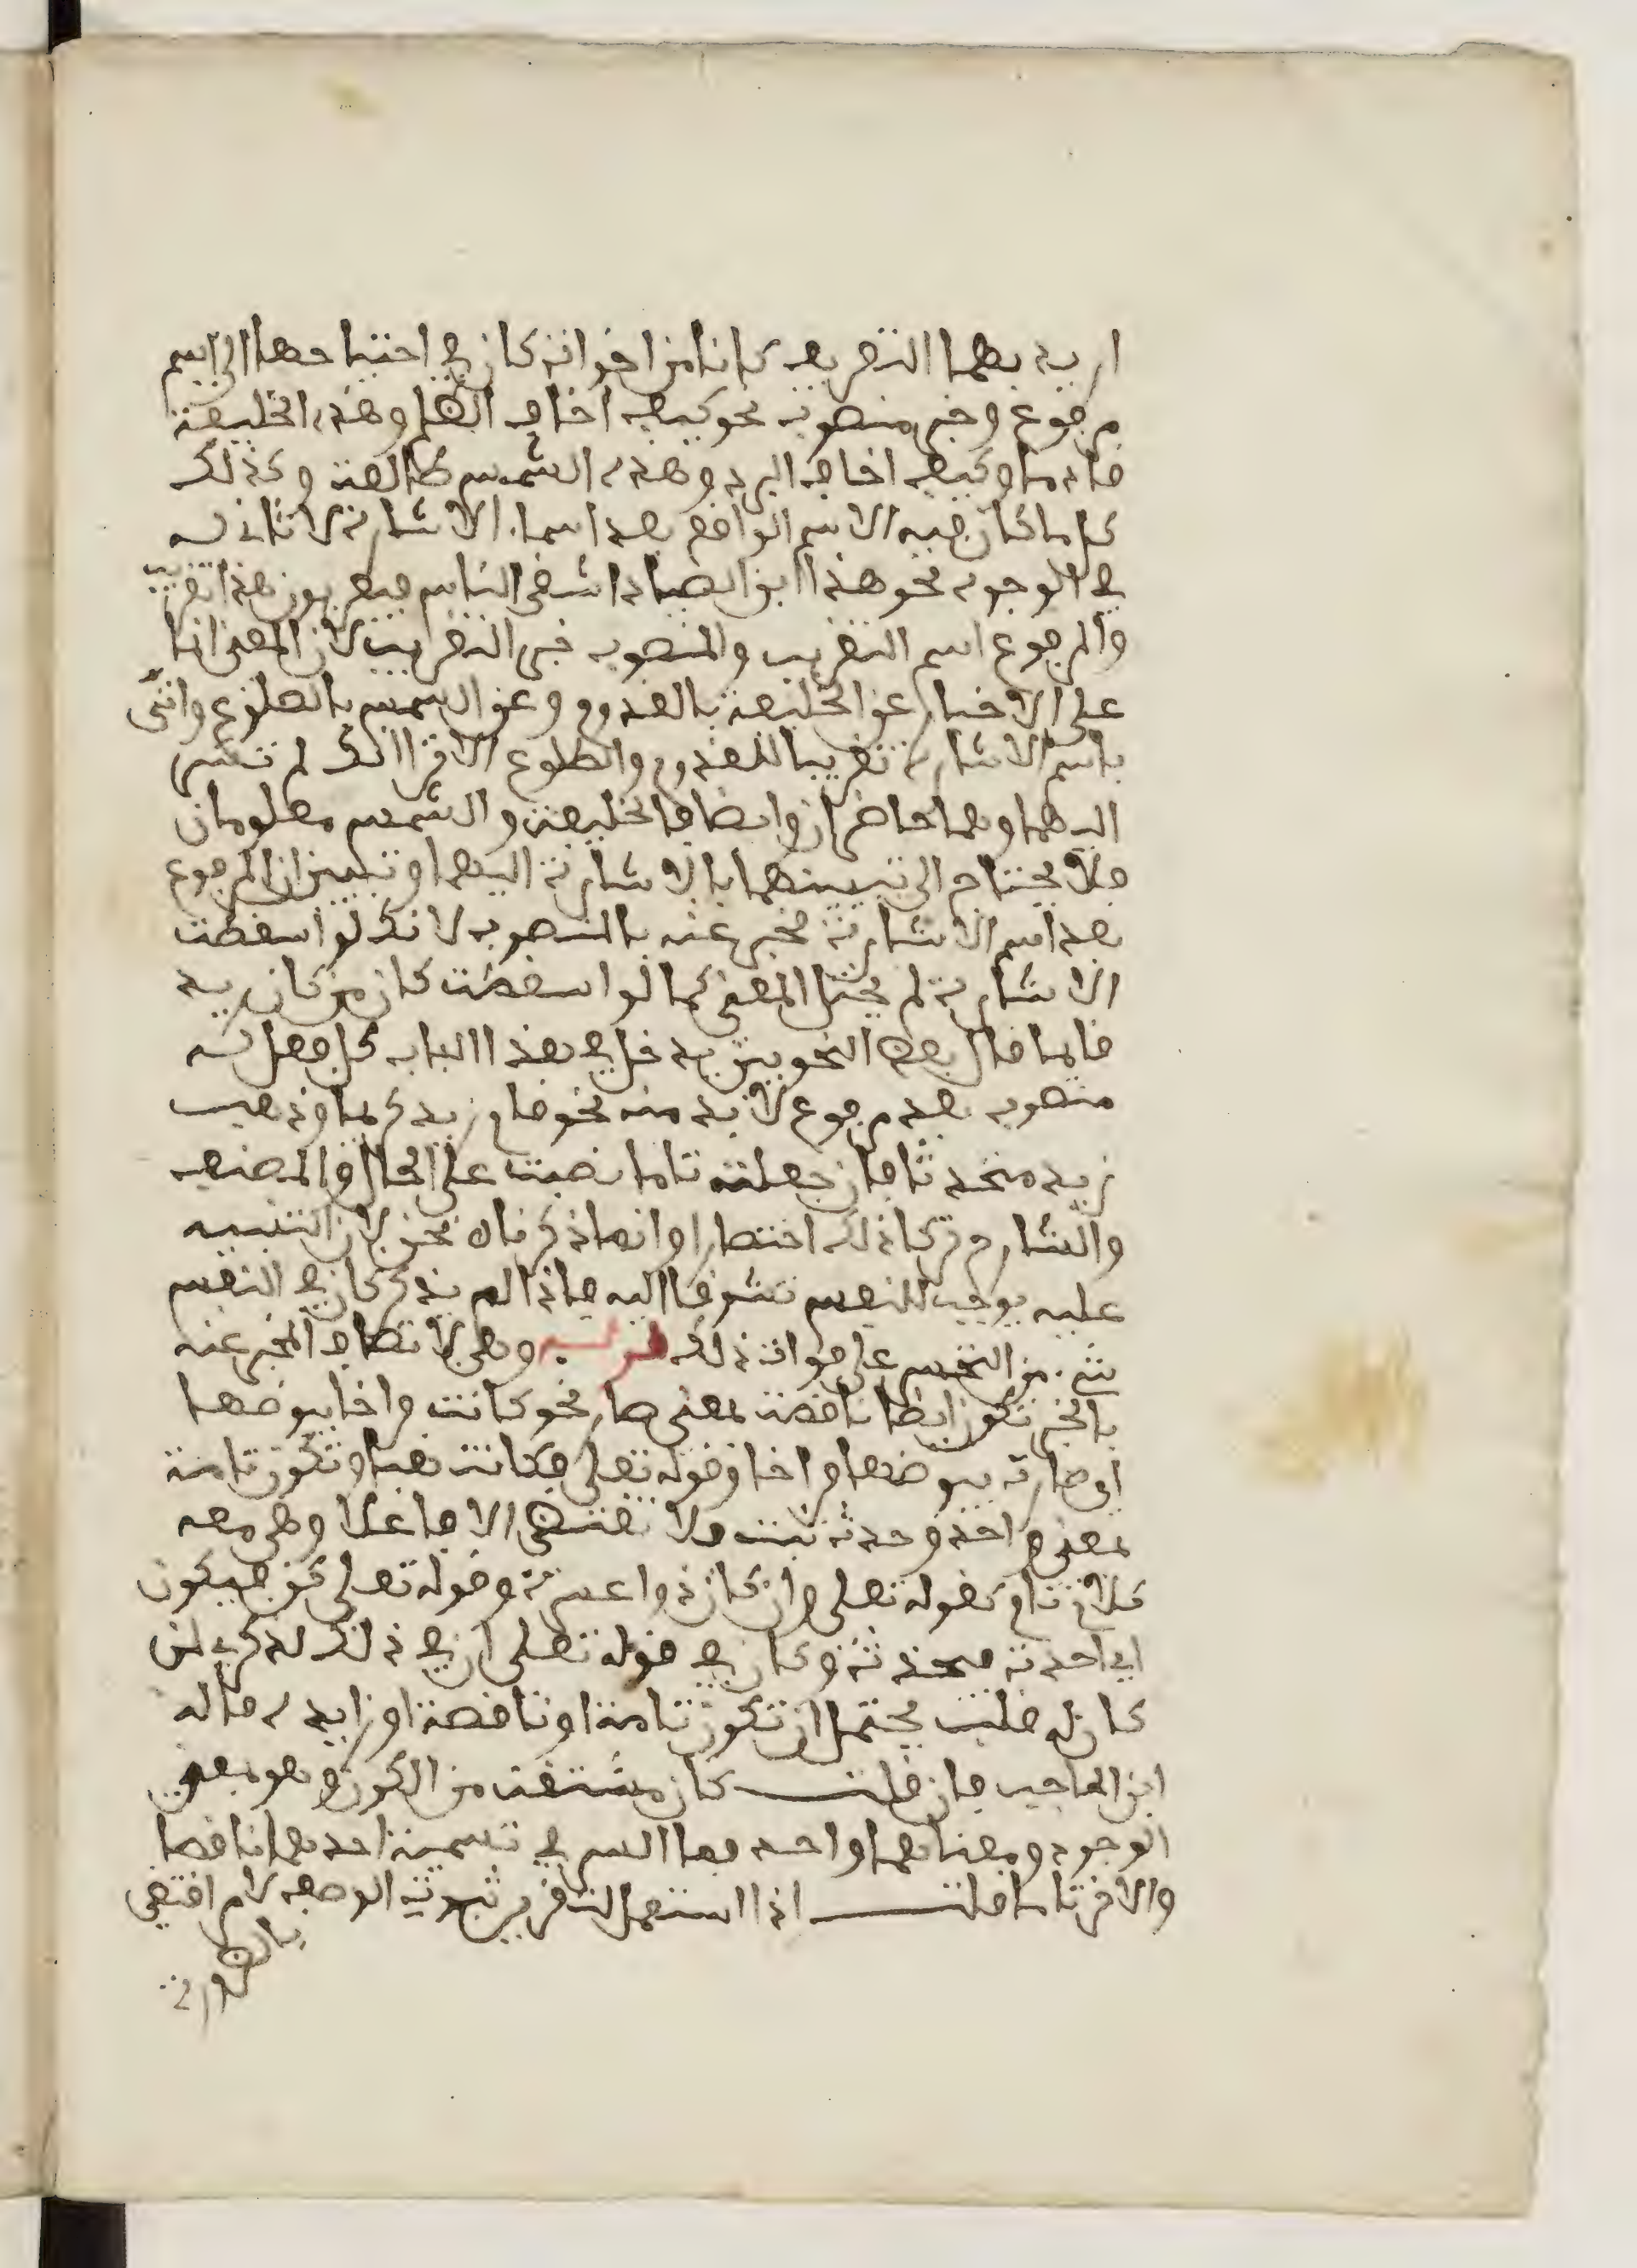 اريد بهما التقريب كانا من اخوات كان في احتياجهما الى اسم
مرفوع وخبر منصوب نحو كيف اخاف الظلم وهذا الخليفة
قادما وكيف اخاف البرد وهذه الشمس طالعة وكذلك
كل ما كان فيه الاسم الواقع بعد اسماء الاشارة لا ثاني له
في الوجود نحو هذا ابن الصياد اشقى الناس فيعربون هذا تقريب
والمرفوع اسم التقريب والمنصوب خبر التقريب لان المعنى انما
على الاخبار عن الخليفة بالقدوم وعن الشمس بالطلوع واتى
باسم الاشارة تقريبا للقدوم والطلوع الا ترى انك لم تشر
اليهما وهما حاضران وايضا فالخليفة والشمس معلومان
فلا يحتاج الى تبيينهما بالاشارة اليهما وتبين ان المرفوع
بعد اسم الاشارة مخبر عنه بالمنصوب لانك لو اسقطت
الاشارة لم يختل المعنى كما لو اسقطت كان من كان زيد
قائما قال بعض النحويين يدخل في هذا الباب كل فعل له
منصوب بعد مرفوع لا بد منه نحو قام زيد كريما وذهب
زيد متحدثا فان جعلته تاما نصبت على الحال والمصنف
والشارح تركا ذلك اختصارا وانما ذكرناه نحن لان التنبيه
عليه يوجب للنفس تشوقا اليه فاذا لم يذكر كان في النفس
شيء من التحسر على فوات ذلك قوله وهي لاتصاف المخبر عنه
بالخبر تكون ايضا ناقصة بمعنى صار نحو كانت فراخا بيوضها
اي صارت بيوضها فراخا وقوله تعلى فكانت هباء وتكون تامة
بمعنى اخذ وحدث ثبت فلا تقتضي الا فاعلا وهي معه
كلام تام كقوله تعلى وان كان ذو عسرة وقوله تعلى كن فيكون
اي احدث فيحدث وكان في قوله تعلى ان في ذلك لذكرى لمن
كان له قلب يحتمل ان تكون تامة او ناقصة او زايدة قاله
ابن الحاجب فان قلت كان مشتقة من الكون وهو بمعنى
الوجود ومعناهما واحد فما السر في تسمية احدهما ناقصا
والاخر تاما قلت اذا استعمل لتقرير ثبوت الوصف لامر اقتضى
بالضرورة